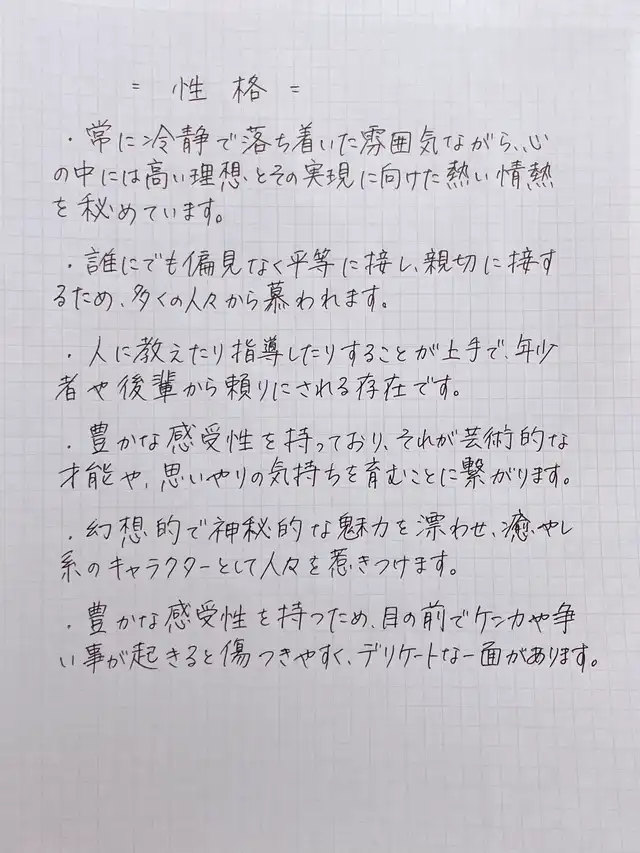 = 性格 =
・常に冷静で落ち着いた雰囲気ながら、心
の中には高い理想とその実現に向けた熱い情熱
を秘めています。
・誰にでも偏見なく平等に接し、親切に接す
るため、多くの人々から慕われます。
・人に教えたり指導したりすることが上手で、年少
者や後輩から頼りにされる存在です。
・豊かな感受性を持っており、それが芸術的な
才能や、思いやりの気持ちを育むことに繋がります。
・幻想的で神秘的な魅力を漂わせ、癒やし
系のキャラクターとして人々を惹きつけます。
・豊かな感受性を持つため、目の前でケンカや争
い事が起きると傷つきやすく、デリケートな一面があります。